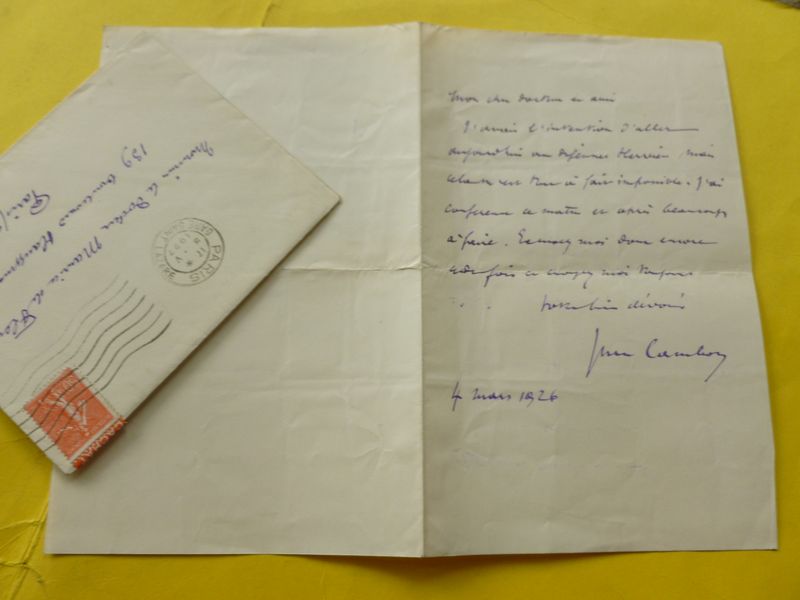 Mon cher docteur et ami
J'avais l'intention d'aller
aujourd'hui au déjeuner Herriot, mais
cela m'est tout à fait impossible. J'ai
conférence ce matin et après beaucoup
à faire. Excusez moi donc encore
fois et croyez moi toujours
votre bien dévoué
Jules Cambon
4 mars 1926
Monsieur le Docteur
139 Boulevard Haussmann
Paris
PARIS
GARE SAINT LAZARE